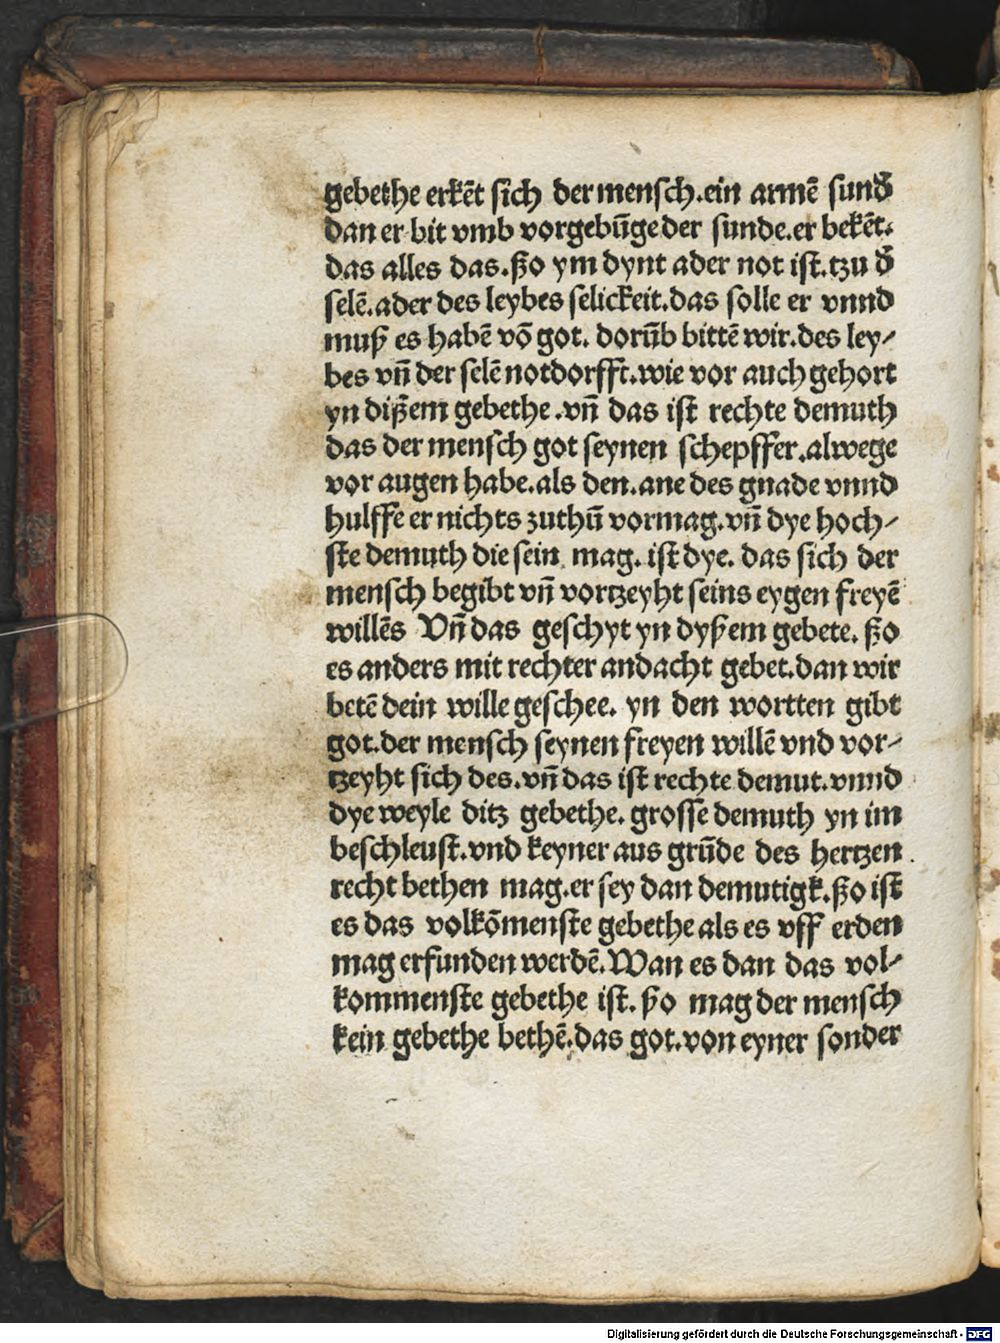 gebethe erkēt sich der mensch.ein armē sund̄
dan er bit vmb vorgebūge der sunde.er bekēt.
das alles das.ßo ym dynt ader not ist.tzu d̄
selē.ader des leybes selickeit.das solle er vnnd
muß es habē vō got. dorūb bittē wir.des ley⸗
bes vn̄ der selē notdorfft.wie vor auch gehort
yn dißem gebethe .vn̄ das ist rechte demuth
das der mensch got seynen schepffer.alwege
vor augen habe.als den.ane des gnade vnnd
hulffe er nichts zuthū vormag.vn̄ dye hoch⸗
ste demuth die sein mag. ist dye. das sich der
mensch begibt vn̄ vortzeyht seins eygen freyē
willēs Vn̄ das geschyt yn dyßem gebete. ßo
es anders mit rechter andacht gebet.dan wir
betē dein wille geschee. yn den wortten gibt
got.der mensch seynen freyen willē vnd vor⸗
tzeyht sich des.vn̄ das ist rechte demut.vnnd
dye weyle ditz gebethe. grosse demuth yn im
beschleust.vnd keyner aus grūde des hertzen.
recht bethen mag.er sey dan demutigk.ßo ist
es das volkōmenste gebethe als es vff erden
mag erfunden werdē.Wan es dan das vol⸗
kommenste gebethe ist. ßo mag der mensch
kein gebethe bethē.das got.von eyner sonder
Digitalisierung gefördert durch die Deutsche Forschungsgemeinschaft - DFG